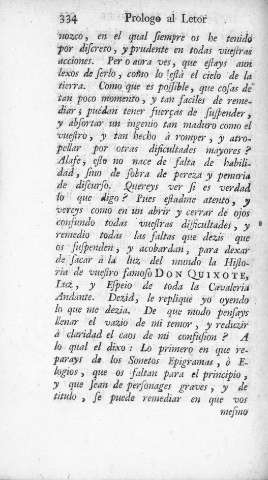 334 Prologo al Letor
nozco, en el qual siempre os he tenido
por discreto, y prudente en todas vuestras
acciones. Pero aora veo, que estays aun
lexos de serlo, como lo està el cielo de la
tierra. Como que es possible, que cosas de
tan poco momento, y tan faciles de reme-
diar; puedan tener fuerças de suspender,
y absortar un ingenio tan maduro como el
vuestro, y tan hecho à romper, y atro-
pellar por otras dificultades mayores?
Alafe, esto no nace de falta de habili-
dad, sino de sobra de pereza y penuria
de discurso. Quereys ver si es verdad
lo que digo? Pues estadme atento, y
vereys como en un abrir y cerrar de ojos
confundo todas vuestras dificultades, y
remedio todas las faltas que dezis que
os suspenden, y acobardan, para dexar
de sacar à la luz del mundo la Histo-
ria de vuestro famoso DON QUIXOTE,
Luz, y Espeio de toda la Cavaleria
Andante. Dezid, le replique yo oyendo
lo que me dezia. De que modo pensays
llenar el vazio de mi temor, y reduzir
à claridad el caos de mi confusion? A
lo qual el dixo: Lo primero en que re-
parays de los Sonetos Epigramas, ò E-
logios, que os faltan para el principio,
y que sean de personages graves, y de
titulo, se puede remediar en que vos
mesmo